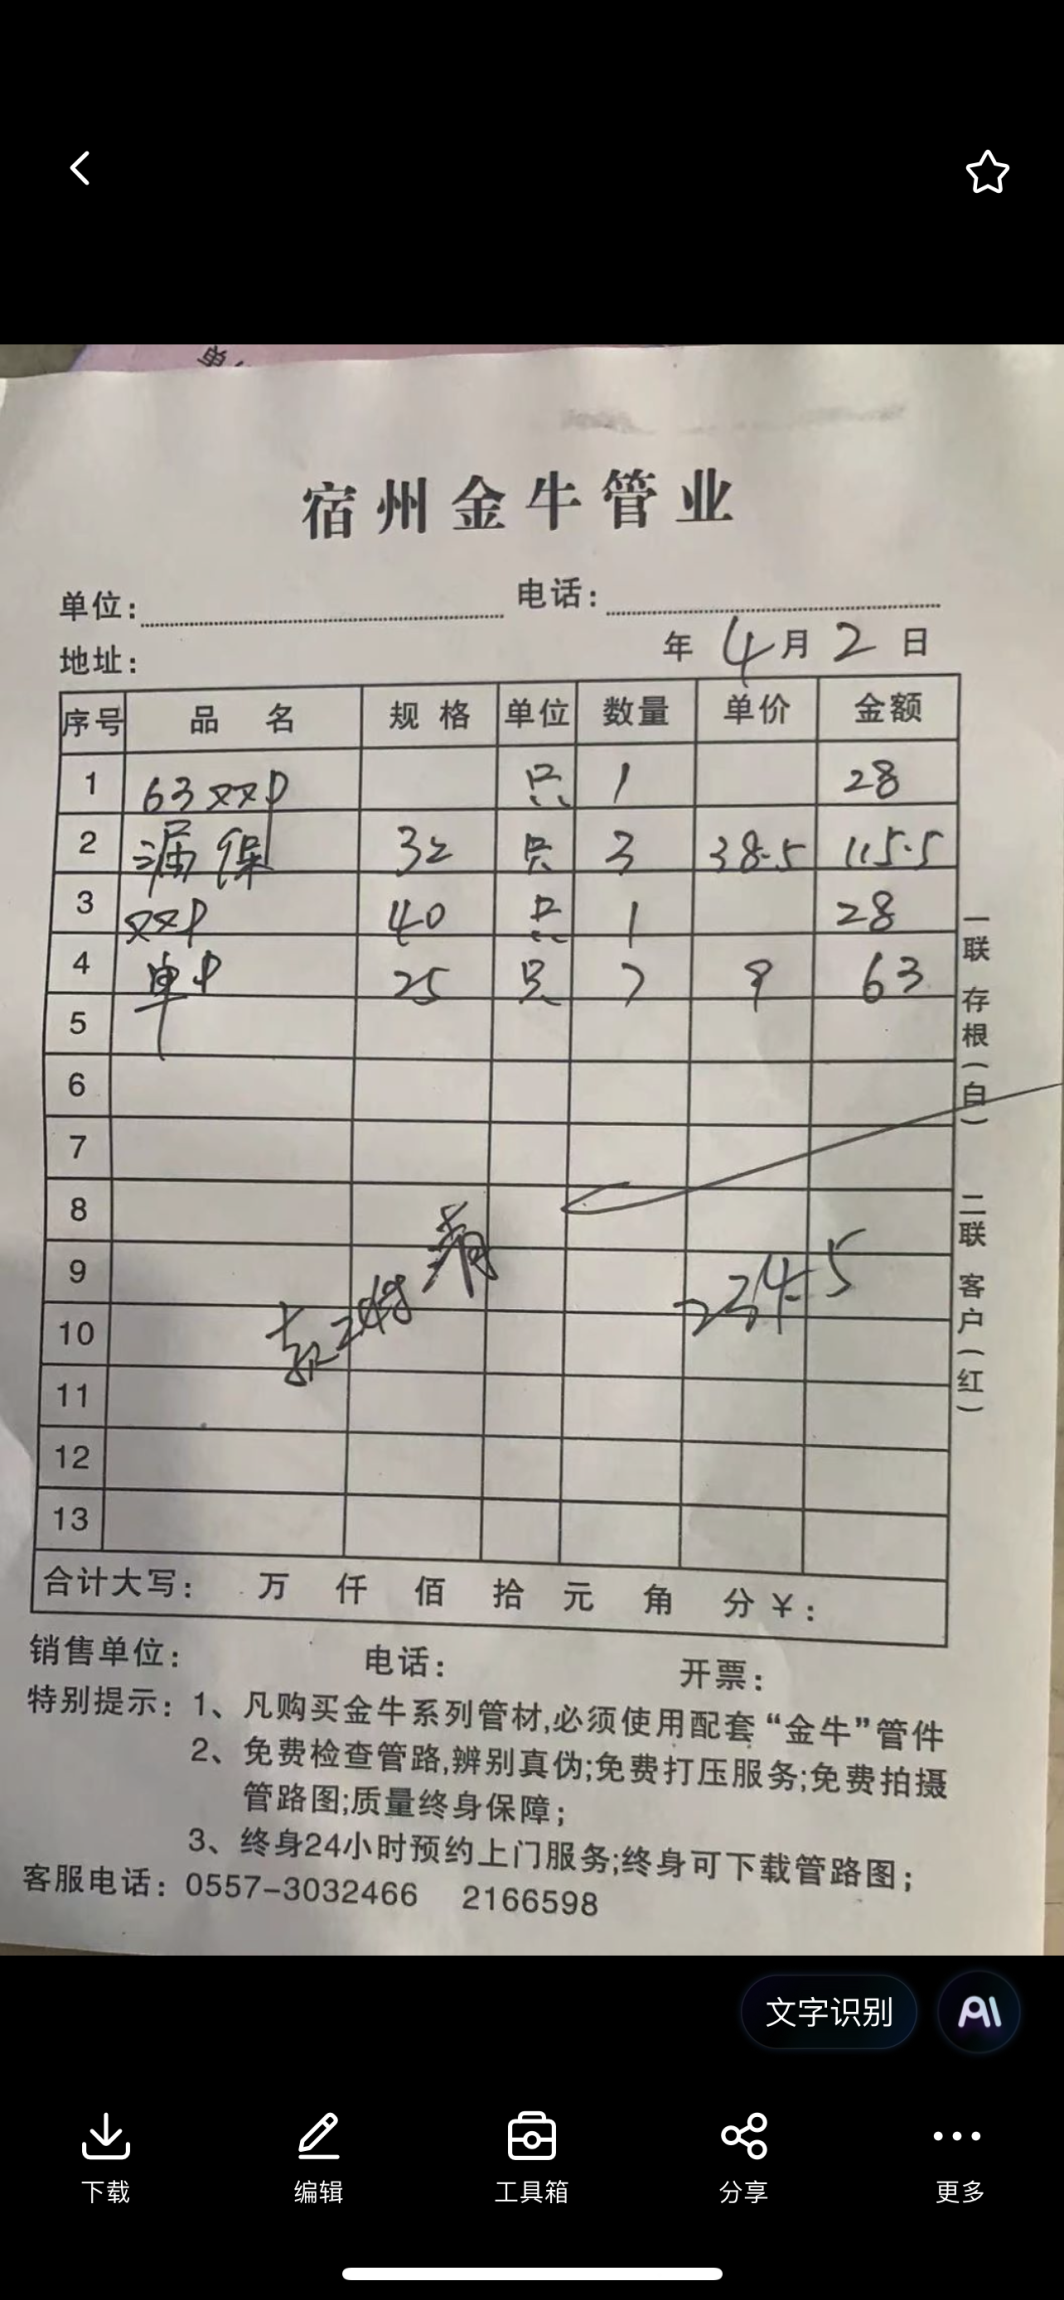 宿州金牛管业
单位： 电话：
地址： 年 4月 2 日
序号 品 名 规 格 单位 数量 单价 金额
1 63双P 只 1 28
2 漏保 32 只 3 38.5 115.5
3 双P 40 只 1 28
4 单P 25 只 7 9 63
5
6
7
8
9 234.5
10
11
12
13
合计大写： 万 仟 佰 拾 元 角 分 ¥：
一联 存根（白） 二联 客户（红）
销售单位： 电话： 开票：
特别提示：1、凡购买金牛系列管材,必须使用配套“金牛”管件
2、免费检查管路,辨别真伪;免费打压服务;免费拍摄
管路图;质量终身保障；
3、终身24小时预约上门服务;终身可下载管路图；
客服电话：0557-3032466 2166598
文字识别 AI
下载 编辑 工具箱 分享 更多